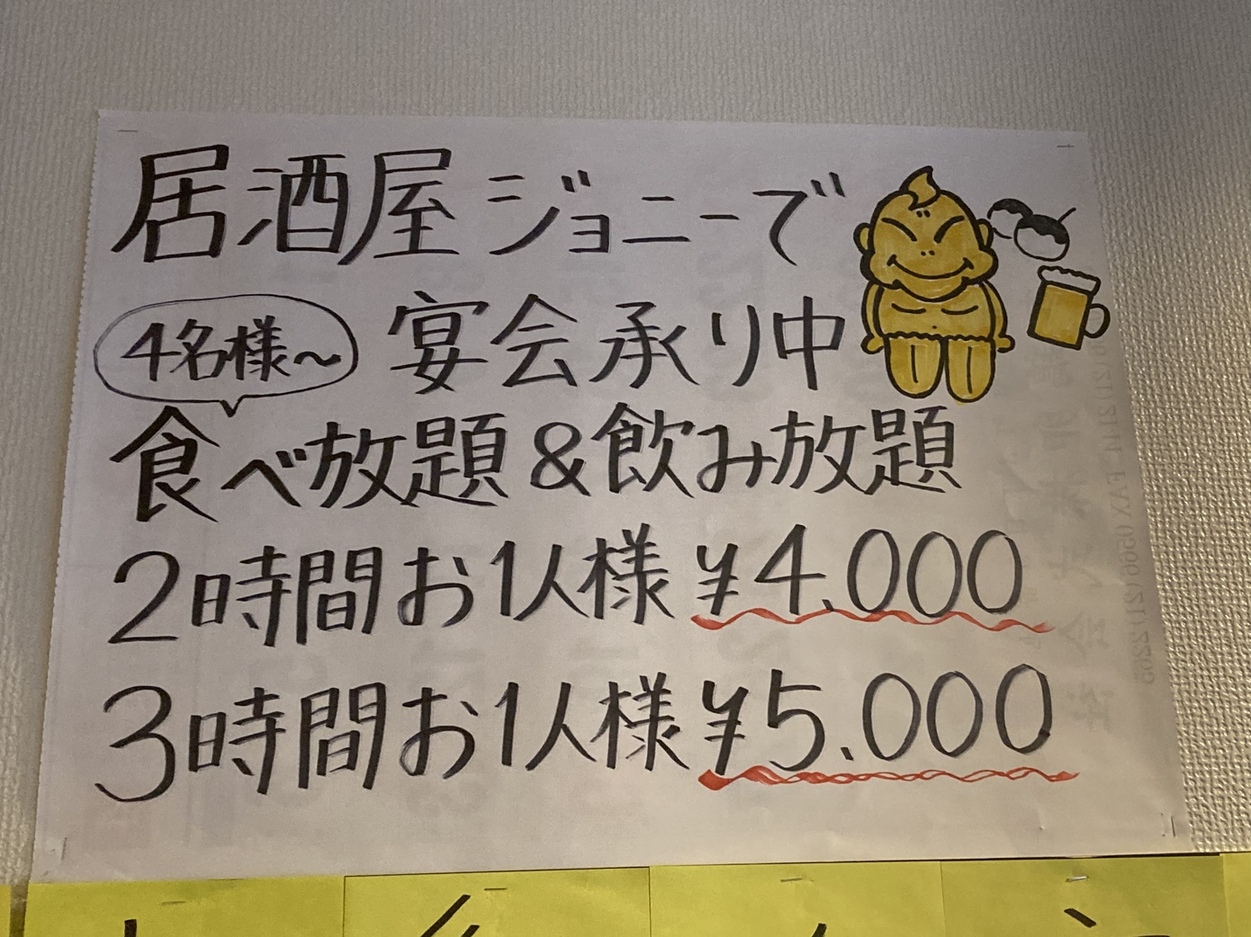 居酒屋ジョニーで
4名様〜
宴会承り中
食べ放題&飲み放題
2時間お1人様¥4.000
3時間お1人様¥5.000